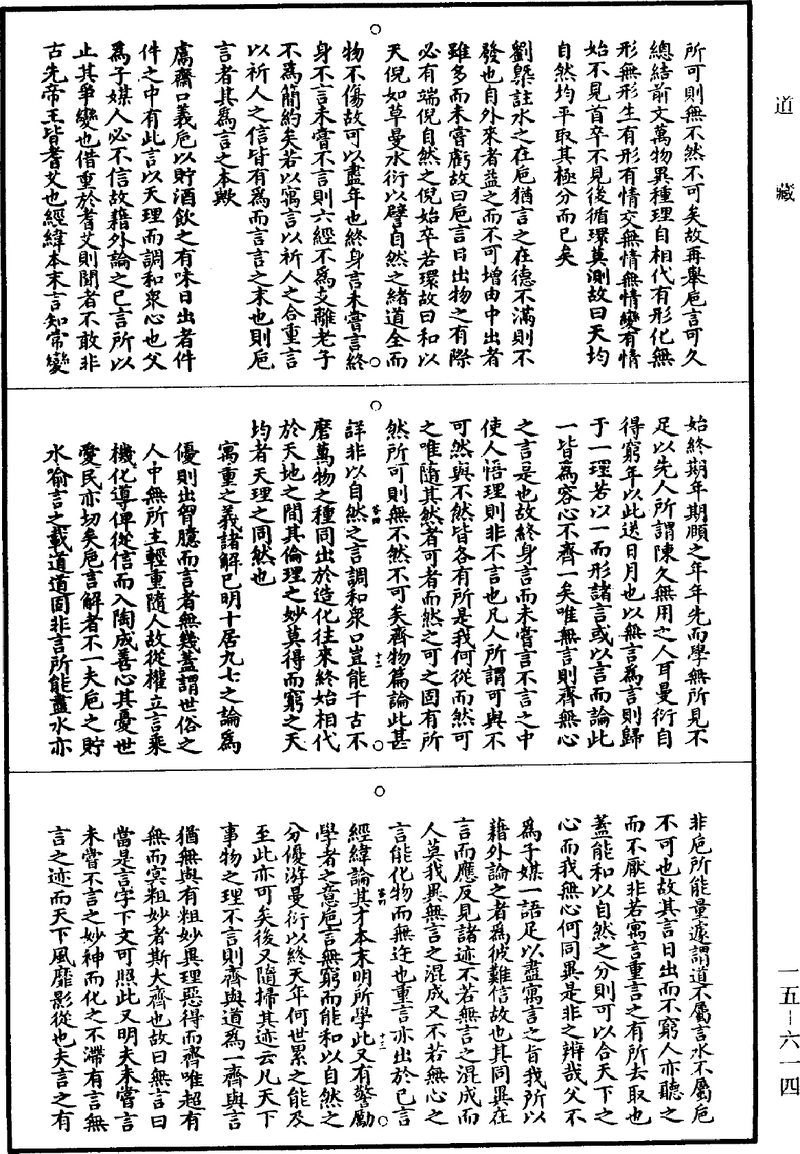 所可則無不然不可矣故再舉巵言可久
總結前文萬物異種理自相代有形化無
形無形生有形有情交無情無情變有情
始不見首卒不見後循環莫測故曰天均
自然均平取其極分而已矣
劉槩註水之在巵猶言之在德不滿則不
發也自外來者益之而不可增由中出者
雖多而未嘗虧故曰巵言日出物之有際
必有端倪自然之倪始卒若環故曰和以
天倪如草曼水衍以譬自然之緒道全而
物不傷故可以盡年也終身言未嘗言終
身不言未嘗不言則六經不為支離老子
不為簡約矣若以寓言以祈人之合重言
以祈人之信皆有為而言言之末也則巵
言者其為言之本歟
鬳齋口義巵以貯酒飲之有味日出者件
件之中有此言以天理而調和眾心也父
為子媒人必不信故藉外論之已言所以
止其爭變也借重於耆艾則聞者不敢非
古先帝王皆耆艾也經緯本末言知常變
始終期年期頤之年年先而學無所見不
足以先人所謂陳久無用之人耳曼衍自
得窮年以此送日月也以無言為言則歸
于一理若以一而形諸言或以言而論此
一皆為容心不齊一矣唯無言則齊無心
之言是也故終身言而未嘗言不言之中
使人悟理則非不言也凡人所謂可與不
可然與不然皆各有所是我何從而然可
之唯隨其然者可者而然之可之固有所
然所可則無不然不可矣齊物篇論此甚
詳非以自然之言調和眾口豈能千古不
磨萬物之種同出於造化往來終始相代
於天地之間其倫理之妙莫得而窮之天
均者天理之同然也
寓重之義諸解已明十居九七之論為
優則出胷臆而言者無幾蓋謂世俗之
人中無所主輕重隨人故從權立言乘
機化導俾從信而入陶成善心其憂世
愛民亦切矣巵言解者不一夫巵之貯
水喻言之載道道固非言所能盡水亦
非巵所能量遽謂道不屬言水不屬巵
不可也故其言日出而不窮人亦聽之
而不厭非若寓言重言之有所去取也
蓋能和以自然之分則可以合天下之
心而我無心何同異是非之辨哉父不
為子媒一語足以盡寓言之旨我所以
藉外論之者為彼難信故也其同異在
言而應反見諸迹不若無言之混成而
人莫我異無言之混成又不若無心之
言能化物而無迕也重言亦出於已言
經緯論其才本末明所學此又有警勵
學者之意巵言無窮而能和以自然之
分優游曼衍以終天年何世累之能及
至此亦可矣後又隨掃其迹云凡天下
事物之理不言則齊與道為一齊與言
猶無與有粗妙異理惡得而齊唯超有
無而㝠粗妙者斯大齊也故曰無言曰
當是言字下文可照此又明夫未嘗言
未嘗不言之妙神而化之不滯有言無
言之迹而天下風靡影從也夫言之有
道藏
一五-六一四